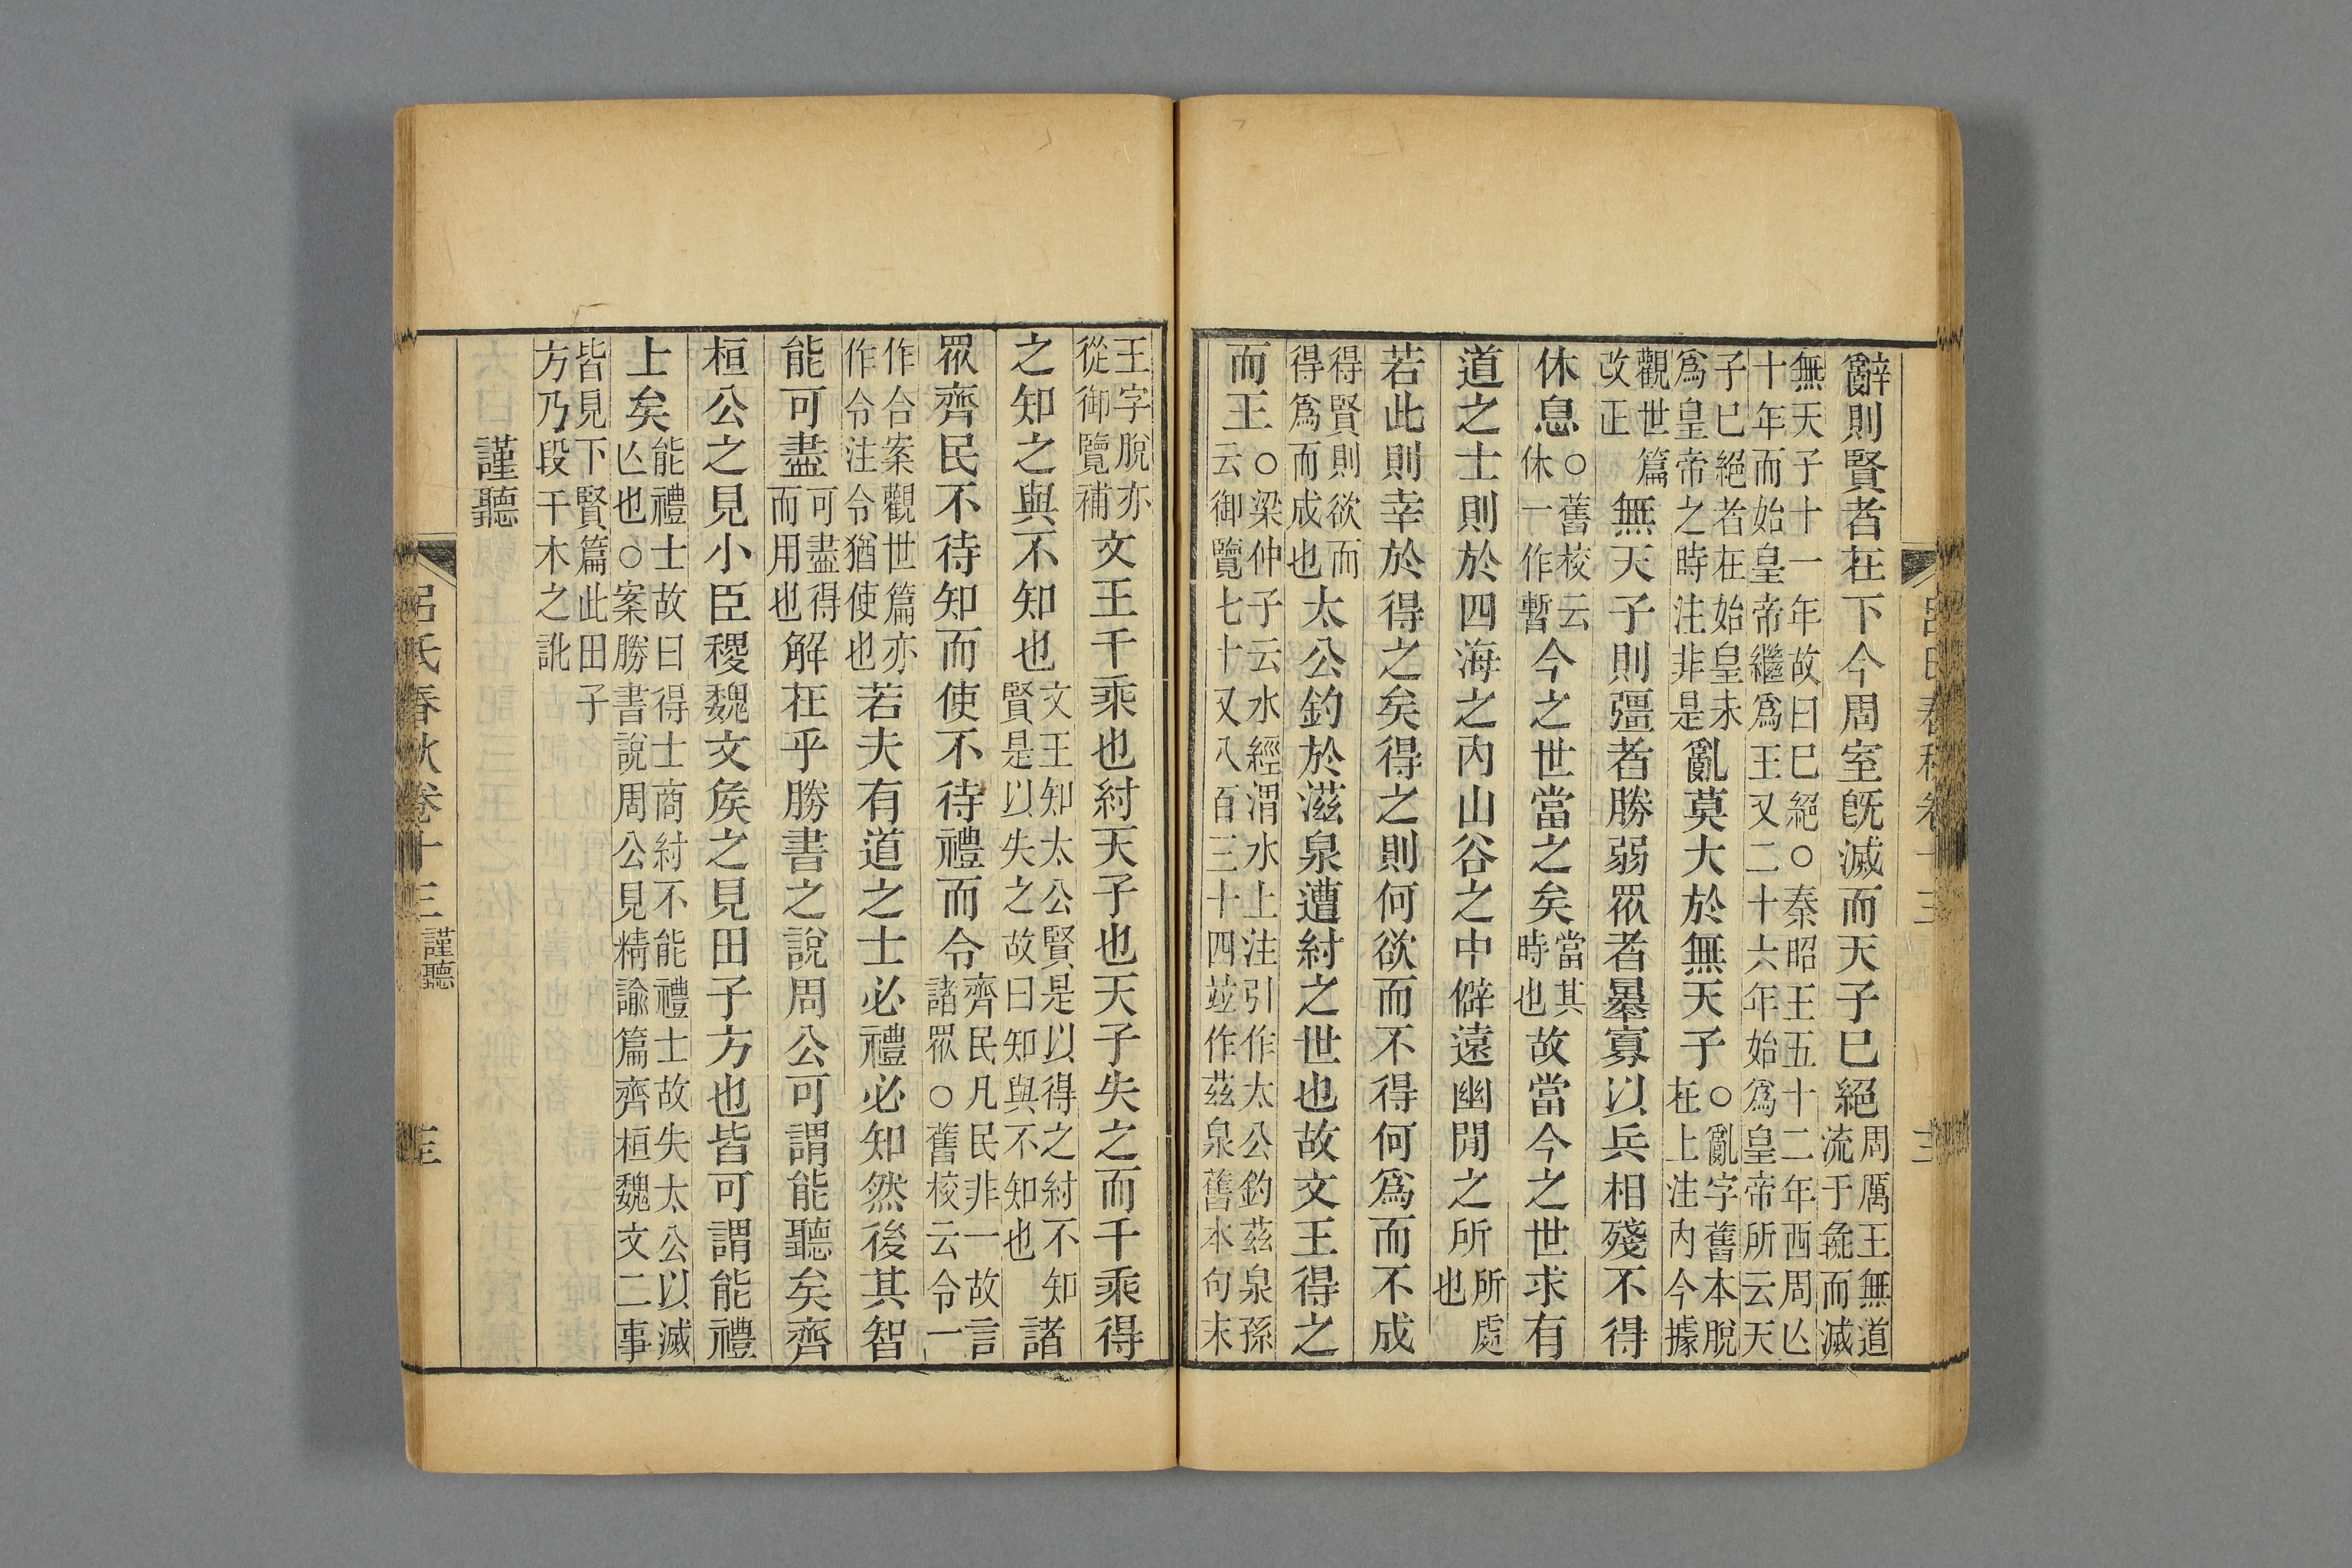 呂氏春秋卷十三 三
辭則賢者在下今周室旣滅而天子已絕周厲王無道流于彘而滅
無天子十一年故曰已絕○秦昭王五十二年西周亾十年而始皇帝繼爲王又二十六年始爲皇帝所云天
子已絕者在始皇未爲皇帝之時注非是亂莫大於無天子○亂字舊本脫在上注內今據
觀世篇改正無天子則彊者勝弱眾者暴寡以兵相殘不得
休息○舊校云休一作暫今之世當之矣當其時也故當今之世求有
道之士則於四海之內山谷之中僻遠幽閒之所所處也
若此則幸於得之矣得之則何欲而不得何爲而不成
得賢則欲而得爲而成也太公釣於滋泉遭紂之世也故文王得之
而王○梁仲子云水經渭水上注引作太公釣茲泉孫云御覽七十又八百三十四竝作茲泉舊本句末
王字脫亦從御覽補文王千乘也紂天子也天子失之而千乘得
之知之與不知也文王知太公賢是以得之紂不知賢是以失之故曰知與不知也諸
眾齊民不待知而使不待禮而令齊民凡民非一故言諸眾○舊校云令一
作合案觀世篇亦作令注令猶使也若夫有道之士必禮必知然後其智
能可盡可盡得而用也解在乎勝書之說周公可謂能聽矣齊
桓公之見小臣稷魏文矦之見田子方也皆可謂能禮
上矣能禮士故曰得士商紂不能禮士故失太公以滅亾也○案勝書說周公見精諭篇齊桓魏文二事
皆見下賢篇此田子方乃段干木之訛
謹聽
呂氏春秋卷十三 謹聽 三